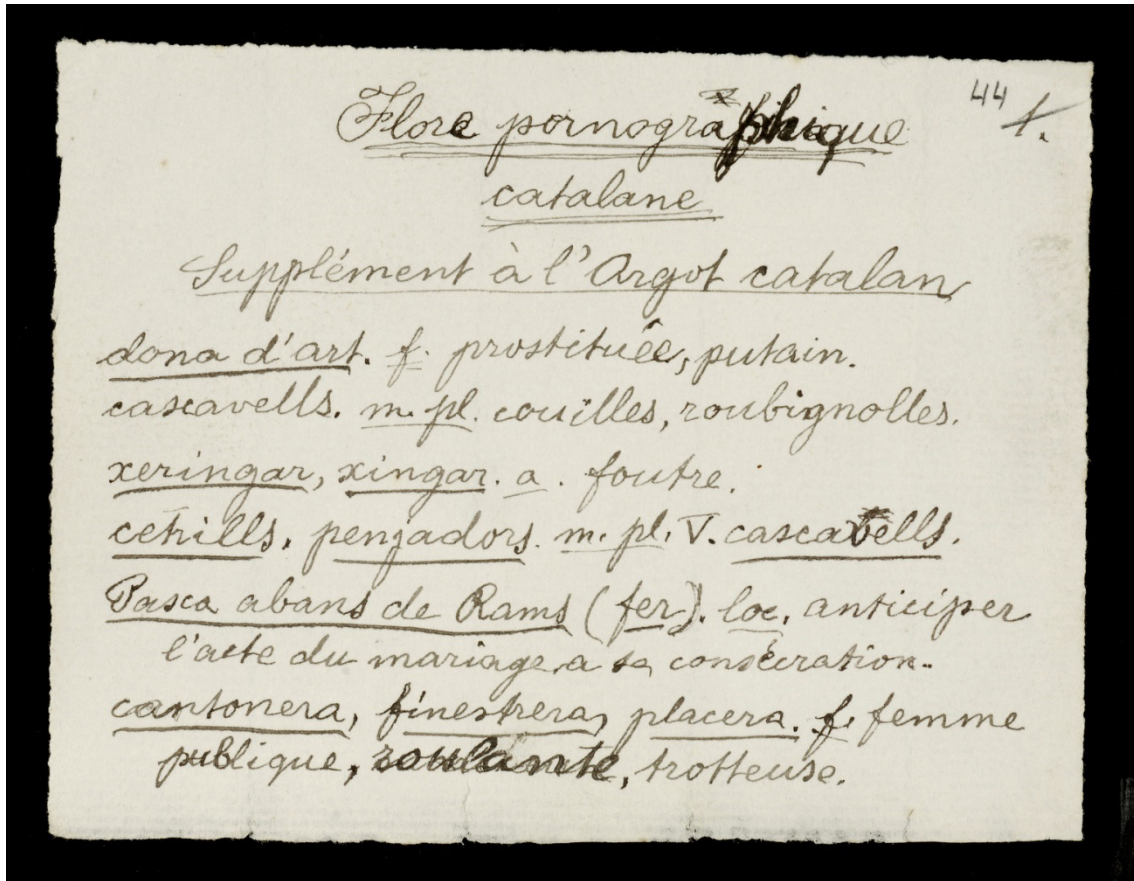 44 1.
Flore pornographique
catalane
Supplément à l'Argot catalan
dona d'art. f. prostituée, putain.
cascavells. m. pl. couilles, roubignolles.
xeringar, xingar. a. foutre.
cetrills, penjadors. m. pl. V. cascabells.
Pasca abans de Rams (fer). loc. anticiper
l'acte du mariage, a sa consécration.
cantonera, finestrera, placera. f. femme
publique, roulante, trotteuse.